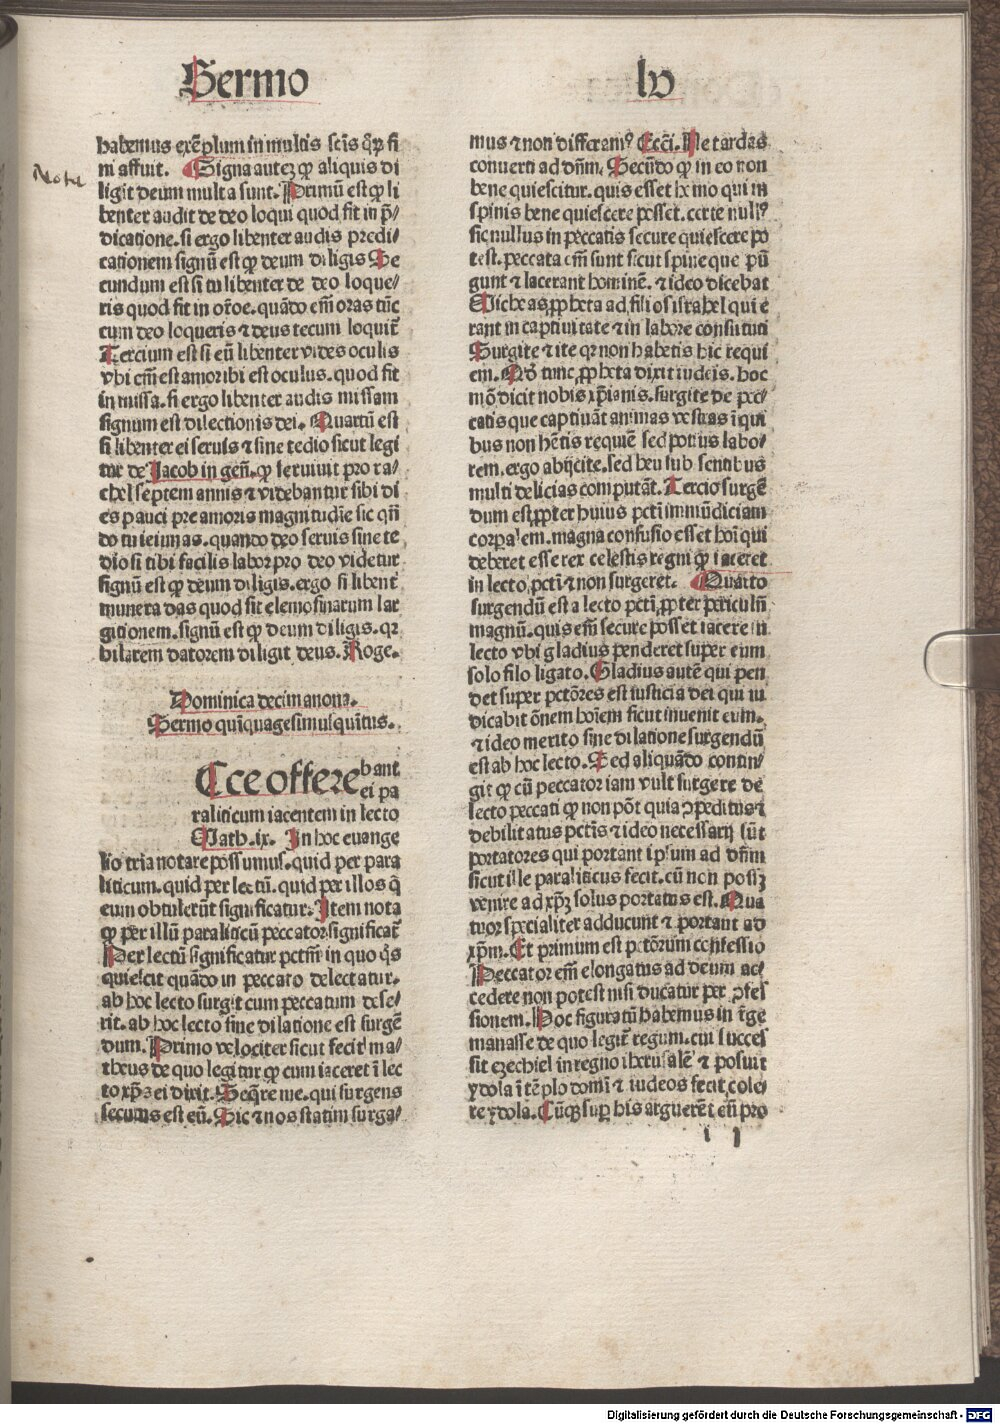 Sermo
lv
Nota
habemus exēplum in multis scīs q̄ȝ fi
ni affuit. Signa autēȝ qp aliquis di
ligit deum multa sunt. Primū est qp li
benter audit de deo loqui quod fit in p̄/
dicatione. si ergo libenter audis predi/
cationem signū est qp deum diligis Se
cundum est si tu libenter de deo loque/
ris quod fit in oīōe. quādo em̄ oras tūc
cum deo loqueris ⁊ deus tecum loquit̄
Tercium est si eū libenter vides oculis
vbi em̄ est amor ibi est oculus. quod fit
in missa. si ergo libenter audis missam
signum est dilectionis dei. Quartū est
si libenter ei seruis ⁊ sine tedio sicut legi
tur de Jacob in gen̄. qp seruiuit pro ra/
chel septem annis ⁊ videbantur sibi di
es pauci pre amoris magnitudīe sic qn̄
do tu ieiunas. quando deo seruis sine te
dio si tibi facilis labor pro deo videtur
signū est qp deum diligis. ergo si libent̄
munera das quod fit elemosinarum lar
gitionem. signū est qp deum diligis. qr
hilarem datorem diligit deus. Roge.
Dominica decimanona.
Sermo quīquagesimusquītus.
Ecce offerebant
ei pa
raliticum iacentem in lecto
Math. ix. In hoc euange
lio tria notare possumus. quid per para
liticum. quid per lectū. quid per illos q̄
eum obtulerūt significatur. Item nota
qp per illū paraliticū peccator significat̄
Per lectū significatur pctm̄ in quo q̄s
quiescit quādo in peccato delectatur.
ab hoc lecto surgit cum peccatum dese/
rit. ab hoc lecto sine dilatione est surgē
dum. Primo velociter sicut fecit ma/
theus de quo legitur qp cum iaceret ī lec
to xp̄s ei dixit. Seq̄re me. qui surgens
secutus est eū. Sic ⁊ nos statim surga/
mus ⁊ non differamꝰ Ecci. Ne tardas
conuerti ad dn̄m. Secūdo qp in eo non
bene quiescitur. quis esset homo qui in
spinis bene quiescere posset. certe nullꝰ
sic nullus in peccatis secure quiescere po
test. peccata em̄ sunt sicut spine que pū
gunt ⁊ lacerant hominē. ⁊ ideo dicebat
Micheas ꝓpheta ad filios israhel qui e
rant in captiuitate ⁊ in labore constituti
Surgite ⁊ ite qr non habetis hic requi
em. Qd̄ tunc ꝓpheta dixit iudeis. hoc
mō dicit nobis xp̄ianis. surgite de pec/
catis que captiuāt animas vestras ī qui
bus non hētis requiē sed potius labo/
rem. ergo abijcite. sed heu sub sentibus
multi delicias computāt. Tercio surgē
dum est ꝓpter huius pctī immūdiciam
corpalem. magna confusio esset hoī qui
deberet esse rex celestis regni qp iaceret
in lecto pctī ⁊ non surgeret. Quarto
surgendū est a lecto pctī ꝓpter periculū
magnū. quis em̄ secure posset iacere in
lecto vbi gladius penderet super eum
solo filo ligato. Gladius autē qui pen
det super pctōres est iusticia dei qui iu
dicabit ōnem hoīem sicut inuenit eum.
⁊ ideo merito sine dilatione surgendū
est ab hoc lecto. Sed aliquādo contin/
git qp cū peccator iam vult surgere de
lecto peccati qp non pōt quia ↄpeditus ⁊
debilitatus pctīs ⁊ ideo necessarij sūt
portatores qui portant ipsum ad dn̄m
sicut ille paraliticus fecit. cū non possȝ
venire ad xp̄ȝ solus portatus est. Qua
tuor specialiter adducunt ⁊ portant ad
xp̄m. Et primum est pctōrum confessio
Peccator em̄ elongatus ad deum ac/
cedere non potest nisi ducatur per ↄfes
sionem. Hoc figuratū habemus in rege
manasse de quo legit̄ regum. cui succes
sit ezechiel in regno iherusalē ⁊ posuit
ydola ī tēplo domī ⁊ iudeos fecit cole/
re ydola. Cūqȝ sup his arguerēt eū pro
i j
Digitalisierung gefördert durch die Deutsche Forschungsgemeinschaft - DFG